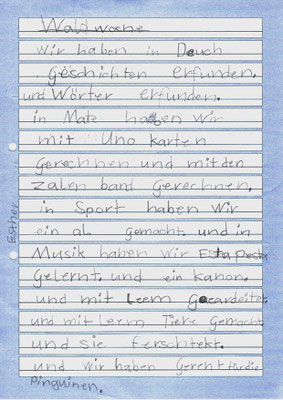 Waldwoche
Wir haben in Deuch
Geschichten erfunden.
und Wörter erfunden.
in Mate haben Wir
mit Uno karten
Gerechnen und mit den
zalen band Gerechnen.
in Sport haben Wir
ein al gemacht und in
Musik haben Wir
Gelernt. und ein kanon.
und mit Leem Gearbeitet
und mit Leem Tiere Gemacht
und sie ferschtekt.
und wir haben Gerent für die
Pinguinen.
Esther